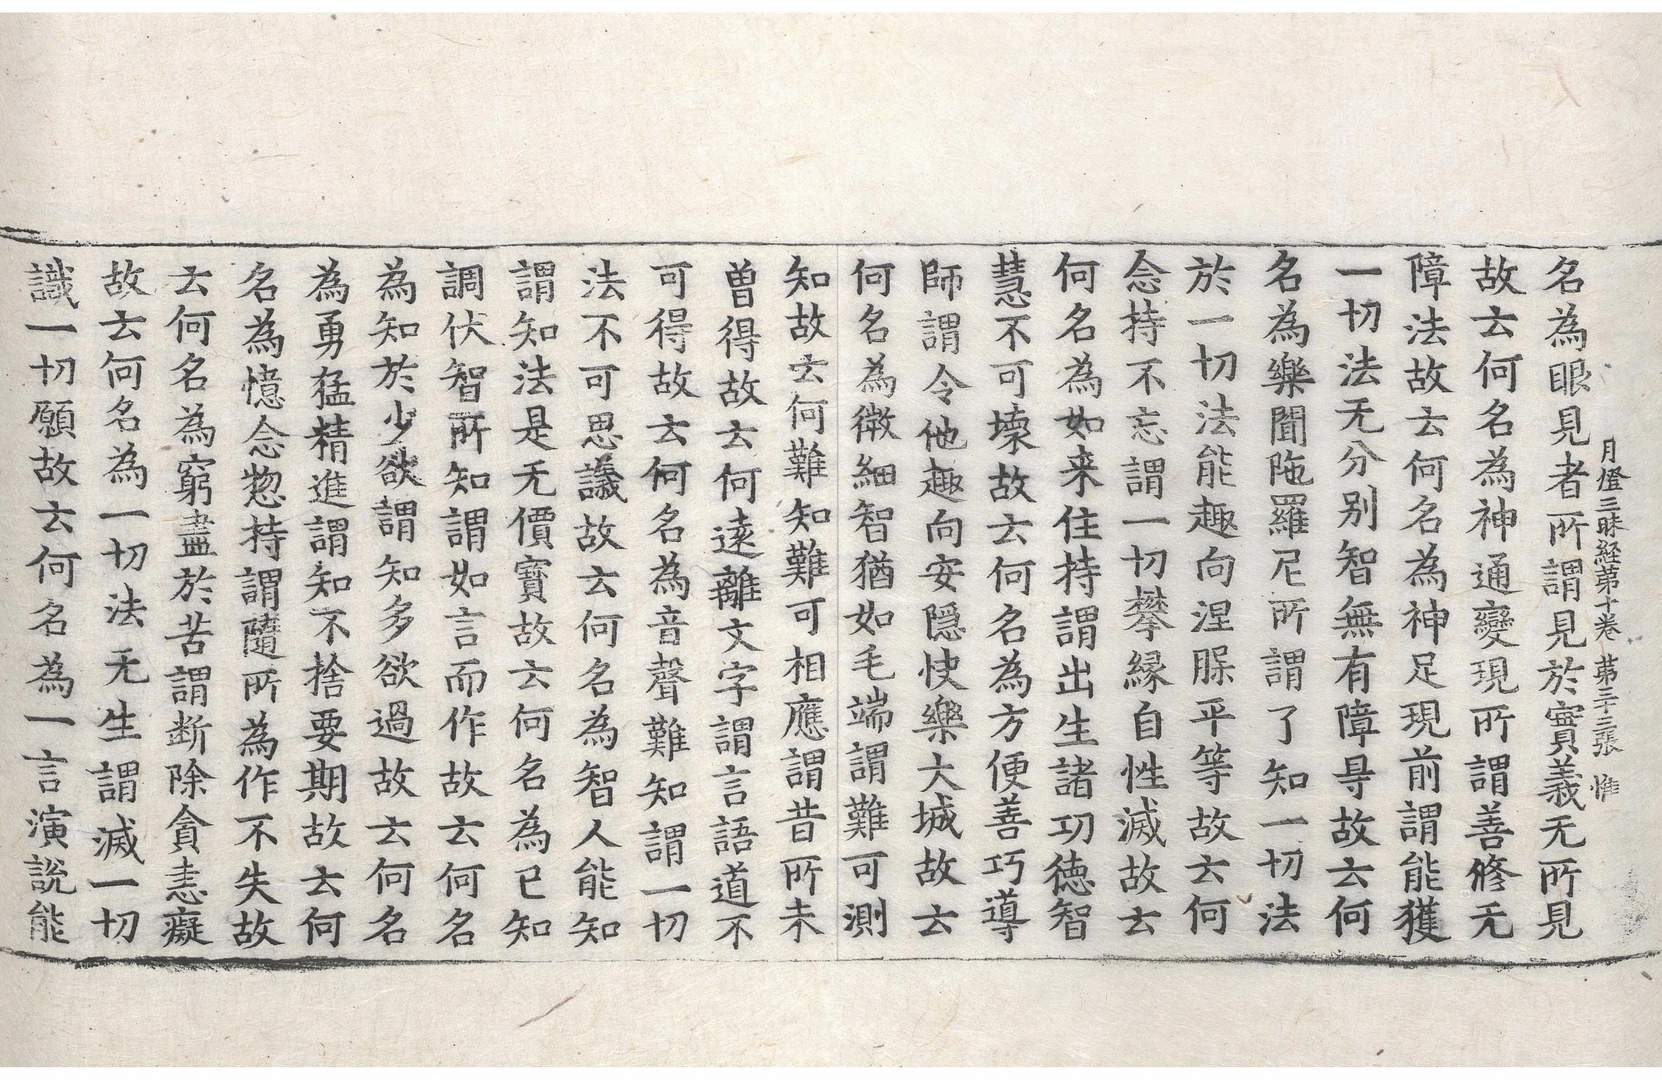 月燈三昧経苐十卷 苐三十三張 惟
名為眼見者所謂見於實義无所見
故云何名為神通變現所謂善修无
障法故云何名為神足現前謂能獲
一切法无分别智無有障㝵故云何
名為樂聞陁羅尼所謂了知一切法
於一切法能趣向涅槃平等故云何
念持不忘謂一切攀緣自性滅故云
何名為如来住持謂出生諸功徳智
慧不可壞故云何名為方便善巧導
師謂令他趣向安隱快樂大城故云
何名為微細智猶如毛端謂難可測
知故云何難知難可相應謂昔所未
曽得故云何遠離文字謂言語道不
可得故云何名為音聲難知謂一切
法不可思議故云何名為智人能知
謂知法是无價寳故云何名為已知
調伏智所知謂如言而作故云何名
為知於少欲謂知多欲過故云何名
為勇猛精進謂知不捨要期故云何
名為憶念惣持謂隨所為作不失故
云何名為窮盡於苦謂断除貪恚癡
故云何名為一切法无生謂滅一切
識一切願故云何名為一言演說能